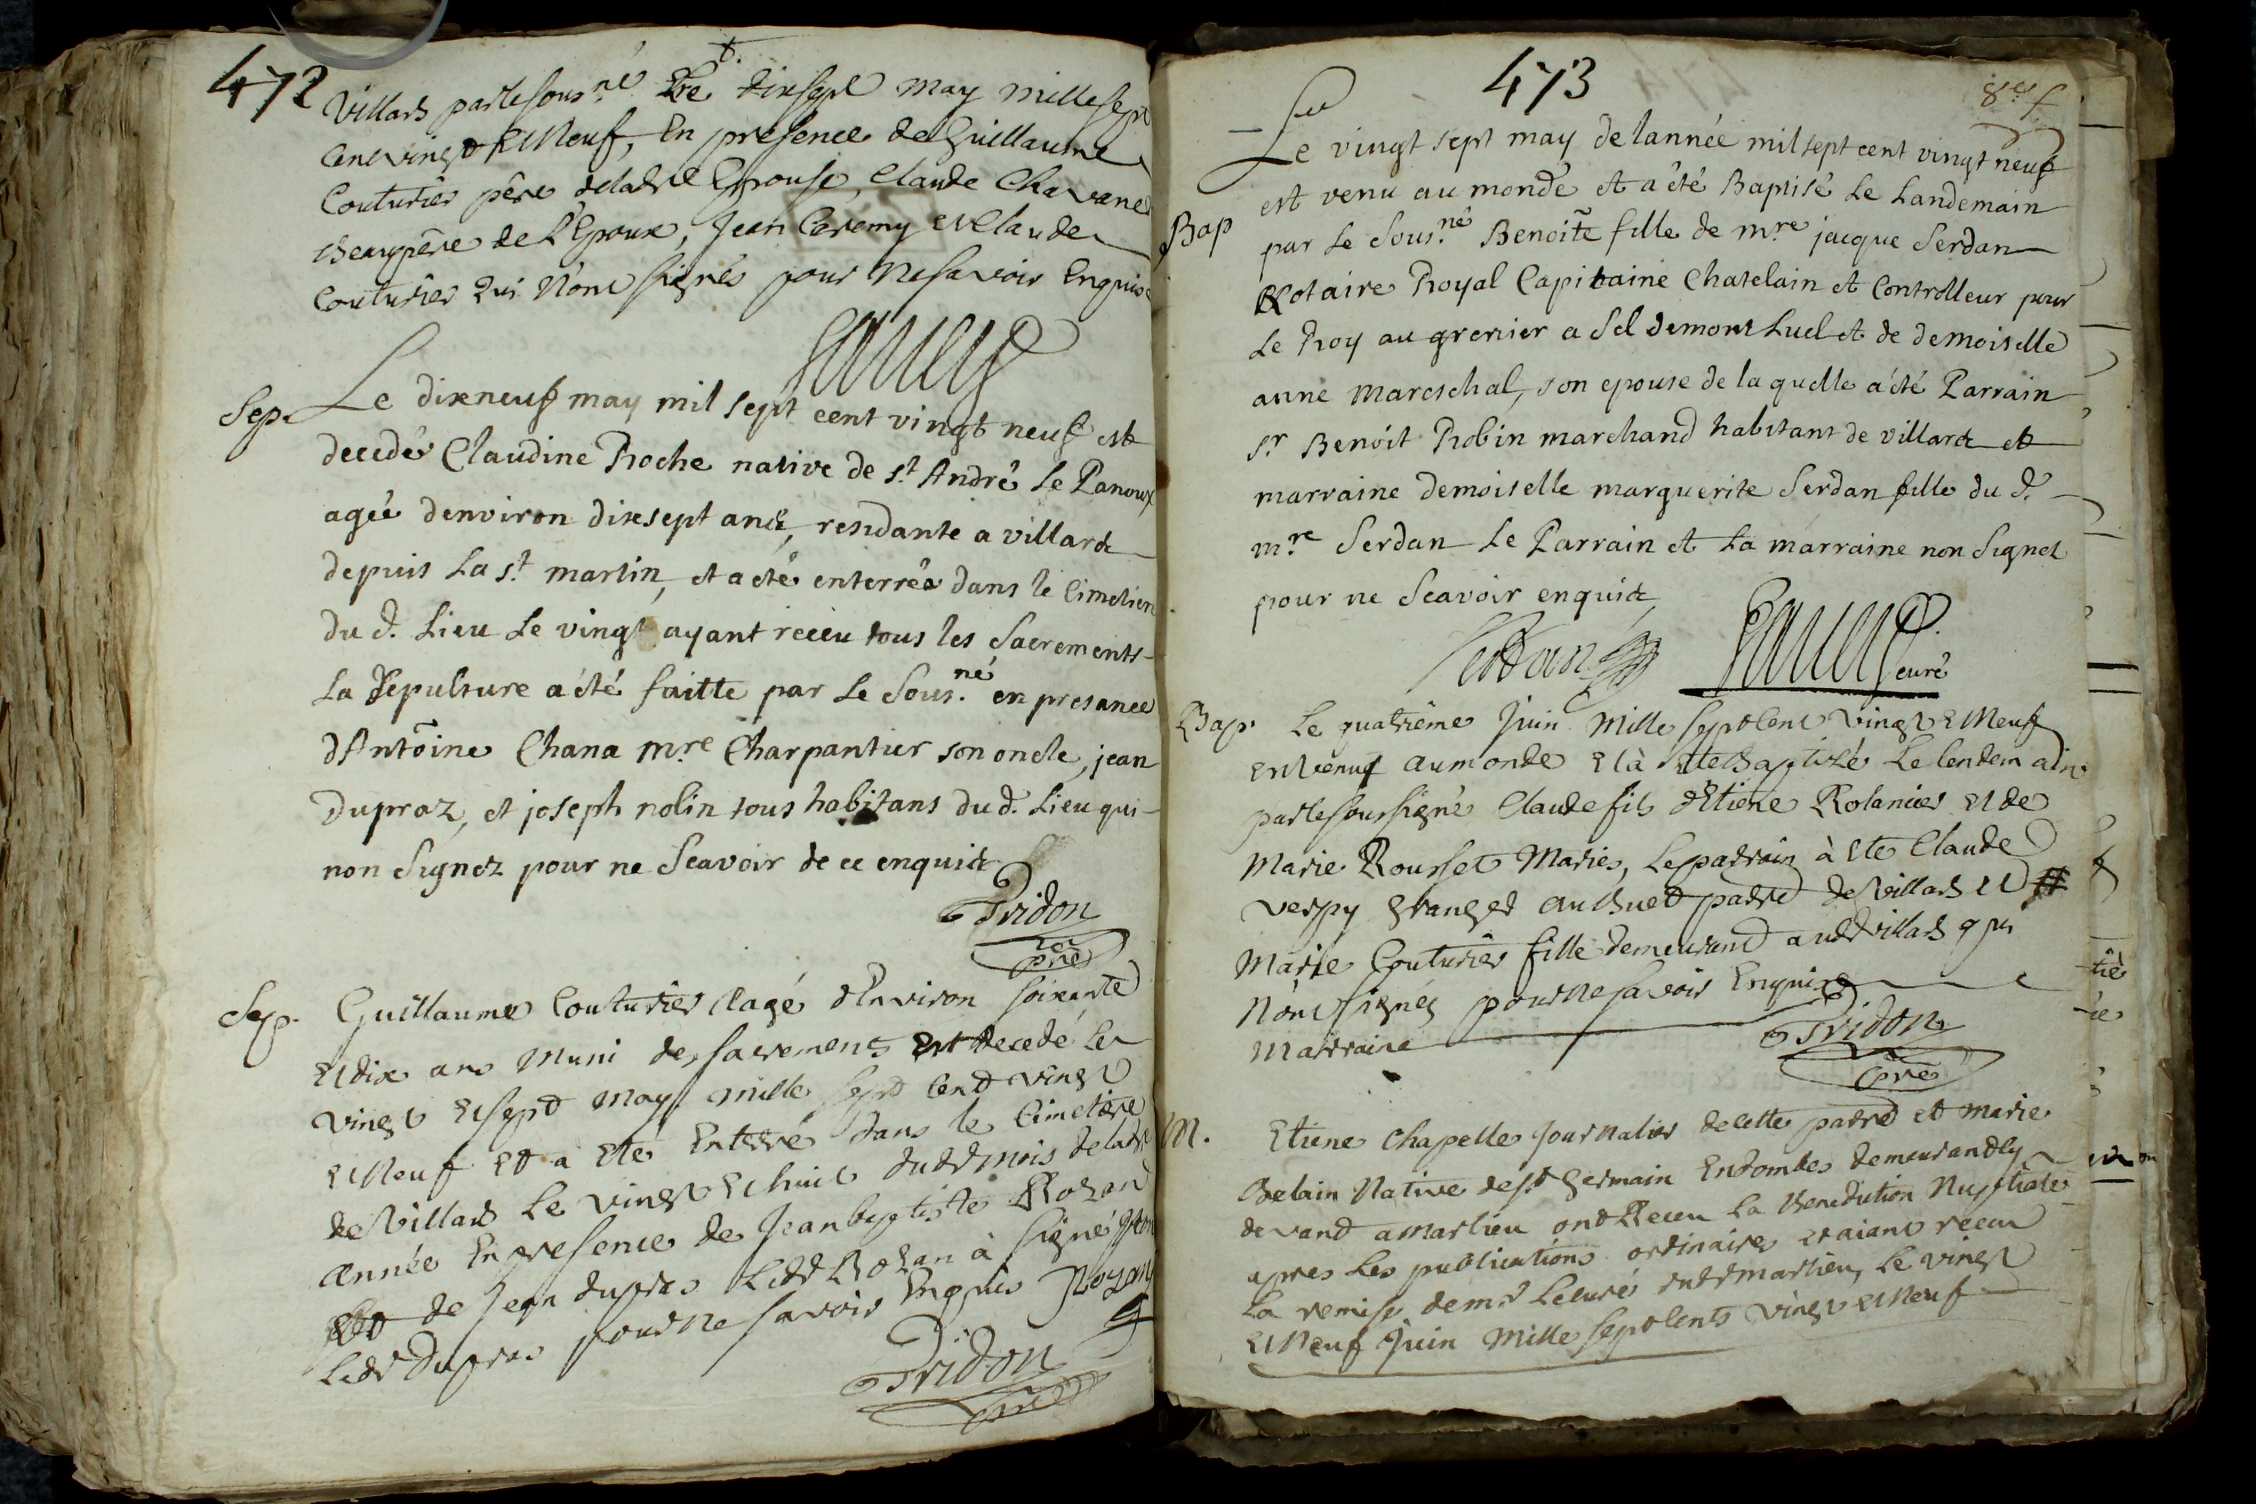 472
Villars par le sous.né Le dixsept may mille sept
cent vingt et Neuf, En presence de Guillaume
Couturier père de ladte Epouse, Claude Chavane
Beaupêre de l'Epoux, Jean et Claude
Couturier qui N'ont signés pour Ne savoir Enquis
Sep. Le dixneuf may mil sept cent vingt neuf est
decedée Claudine Roche native de st. André le Panoux
agée denviron dixsept ans, residante a villars
depuis La st. martin, et a eté enterrée dans le Cimetiere
du d. Lieu Le vingt ayant receu tous les Sacrements
La Sepulture a été faitte par Le Sous.né en presance
d'Antoine Chana mre Charpantier son oncle, jean
Dupraz, et joseph nolin tous habitans du d. Lieu qui
non Signez pour ne Scavoir de ce enquis
Tridon
pre
Sep. Guillaume Couturier agé d'Environ soixante
et dix ans Muni des sacrements Est decedé le
vingt et sept may mille sept cent vingt
et Neuf et a eté Enterré dans le Cimetiere
de Villars Le vingt et huit dudt mois de ladte
année En presence de Jean baptiste Rozan
Et de Jean dupras Ledt Rozan à signé non
Ledt Dupras pour Ne savoir Enquis Rozan
Tridon
pre
473
Le vingt sept may de lannée mil sept cent vingt neuf
est venu au monde et a été Baptisé Le Landemain
Bap par Le Sous.né Benoite fille de mre jacque Serdan
Notaire Royal Capitaine Chatelain et Controlleur pour
Le Roy au grenier a Sel de mont Luel et de demoiselle
anne mareschal, son epouse de la quelle a été Parrain
sr Benoit Robin marchand habitant de villars et
marraine demoiselle marguerite Serdan fille du d.
mre Serdan Le Parrain et La marraine non Signet
pour ne Scavoir enquis
Serdan
curé
Bap. Le quatriême Juin Mille sept cent vingt et Neuf
est venut au monde et à eté Baptizé Le lendemain
par le sous signé Claude fils d'Etiene Rolanier et de
Marie Rousset Mariés, Le parrain à eté Claude
verpy granger au Buet parsse de Villars et #
Marie Couturier fille demeurant audt villars qui
N'ont signés pour Ne savoir Enquis
Marraine
Tridon
pre
M. Etiene Chapelle Journalier de cette parsse et Marie
Belain Native de st Germain En dombes demeurant cy
devant a Marlieu ont Receu La Benediction Nuptiale
apres Les publications ordinaires et aiant receu
La remise de mr Le curé dudt marlieu, Le vingt
et Neuf Juin Mille sept cents vingt et Neuf